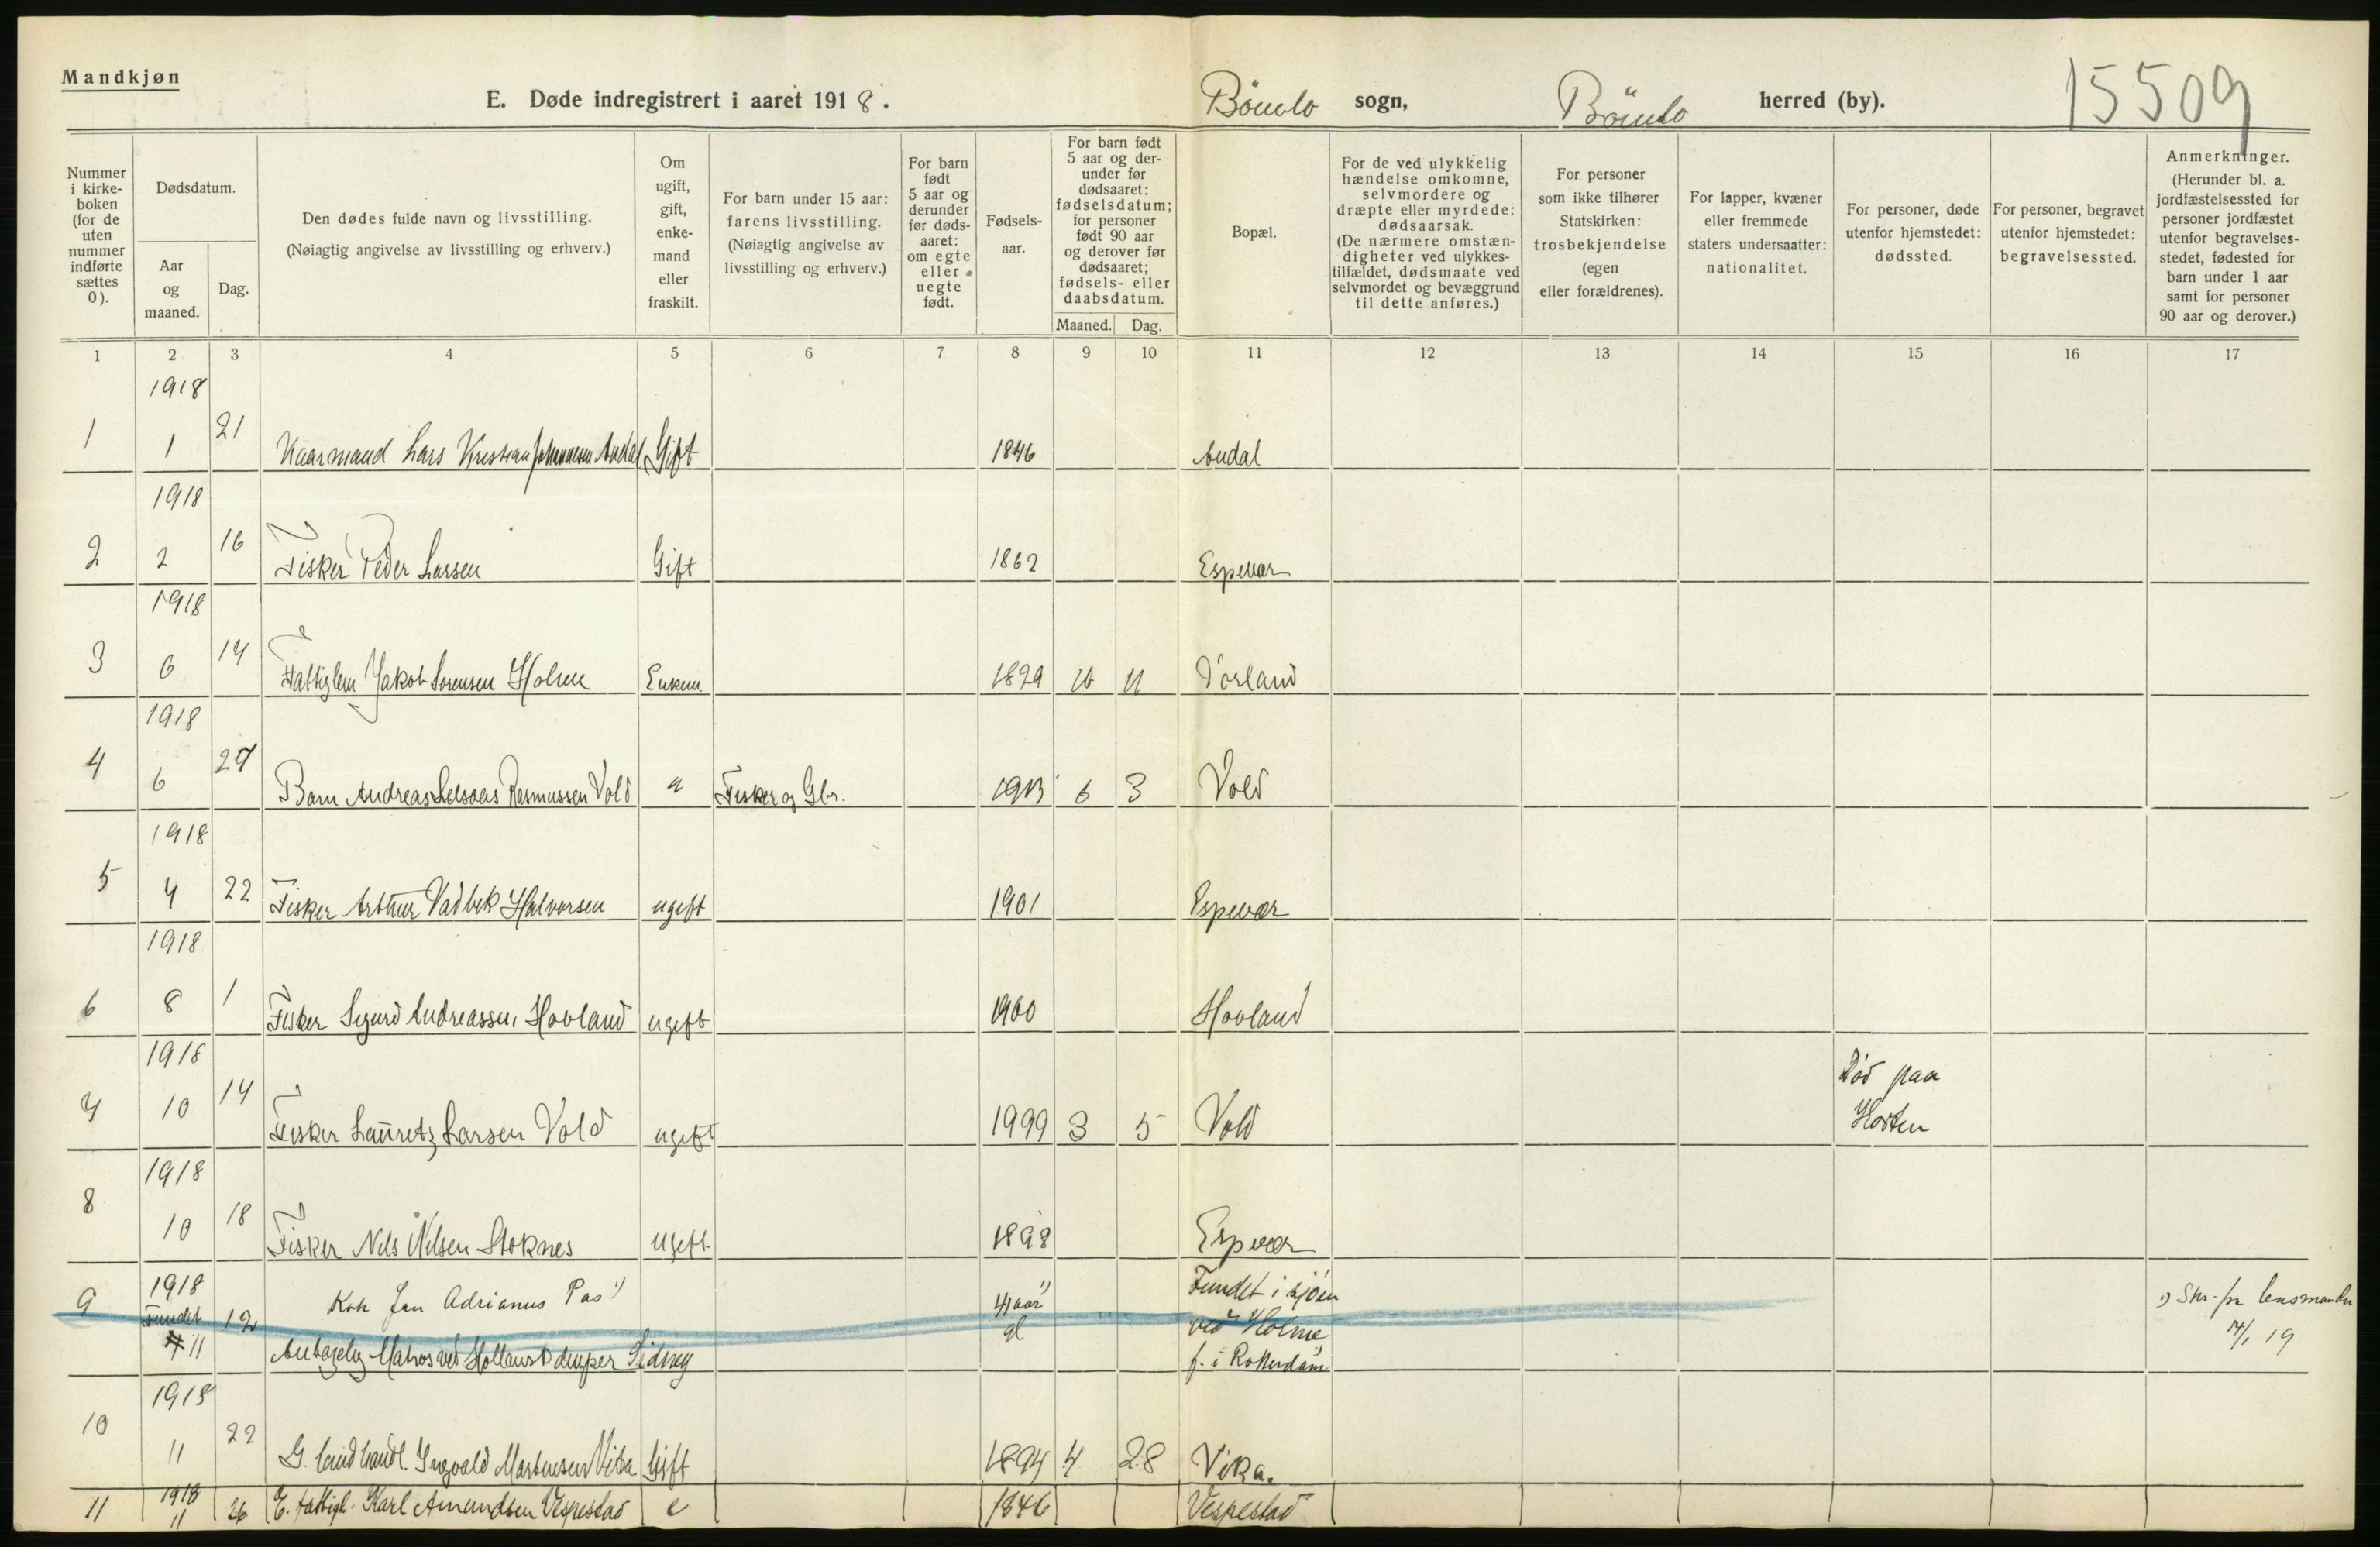 Mandkjøn
E. Døde indregistrert i aaret 1918. Bömlo sogn, Bömlo herred (by). 15509
Nummer i kirke-boken (for de uten nummer indførte sættes 0).
Dødsdatum.
Aar og maaned.
Dag.
Den dødes fulde navn og livsstilling.
(Nøiagtig angivelse av livsstilling og erhverv.)
Om ugift, gift, enke-mand eller fraskilt.
For barn under 15 aar: farens livsstilling.
(Nøiagtig angivelse av livsstilling og erhverv.)
For barn født 5 aar og derunder før døds-aaret: om egte eller uegte født.
Fødsels-aar.
For barn født 5 aar og der-under før dødsaaret: fødselsdatum; for personer født 90 aar og derover før dødsaaret; fødsels- eller daabsdatum.
Maaned. Dag.
Bopæl.
For de ved ulykkelig hændelse omkomne, selvmordere og dræpte eller myrdede: dødsaarsak.
(De nærmere omstæn-digheter ved ulykkes-tilfældet, dødsmaate ved selvmordet og bevæggrund til dette anføres.)
For personer som ikke tilhører Statskirken: trosbekjendelse (egen eller forældrenes).
For lapper, kvæner eller fremmede staters undersaatter: nationalitet.
For personer, døde utenfor hjemstedet: dødssted.
For personer, begravet utenfor hjemstedet: begravelsessted.
Anmerkninger.
(Herunder bl. a. jordfæstelsessted for personer jordfæstet utenfor begravelses-stedet, fødested for barn under 1 aar samt for personer 90 aar og derover.)
1 2 3 4 5 6 7 8 9 10 11 12 13 14 15 16 17
1918
1 1 21 Kaarmand Lars Kristian Johannesen Andal Gift 1846 Andal
1918
2 2 16 Fisker Peder Larsen Gift 1862 Espevær
1918
3 6 14 Fattiglem Jakob Sorensen Holme Enkem. 1829 11 Vorland
1918
4 6 Barn Andreas Rasmussen Vold Fisker og Gbr. 1913 6 3 Vold
1918
5 4 22 Fisker Arthur Vadbek Halvorsen ugift 1901 Espevær
1918
6 8 1 Fisker Sigurd Andreassen, Hovland ugift 1900 Hovland
1918
7 10 14 Fisker Lauretz Larsen Vold ugift 1999 3 5 Vold Död paa Horten
1918
8 10 18 Fisker Nels Nilsen Stoknes ugift 1898 Espevær
1918
9 Fundet 11 12 Kok Jan Adrianus Pas 1) 41 aar 1) gl Fundet i sjöen ved Holme
Antagelig Matros ved Hollansk damper Sidney f. i Rotterdam 1)
1) Skr. fra lensmanden 14/1 19
1918
10 11 22 G. landhandl. Ingvald Martinsen Vika Gift 1894 4 28 Vika.
11 1918 11 26 E. fattigl. Karl Amundsen Vespestad e 1846 Vespestad